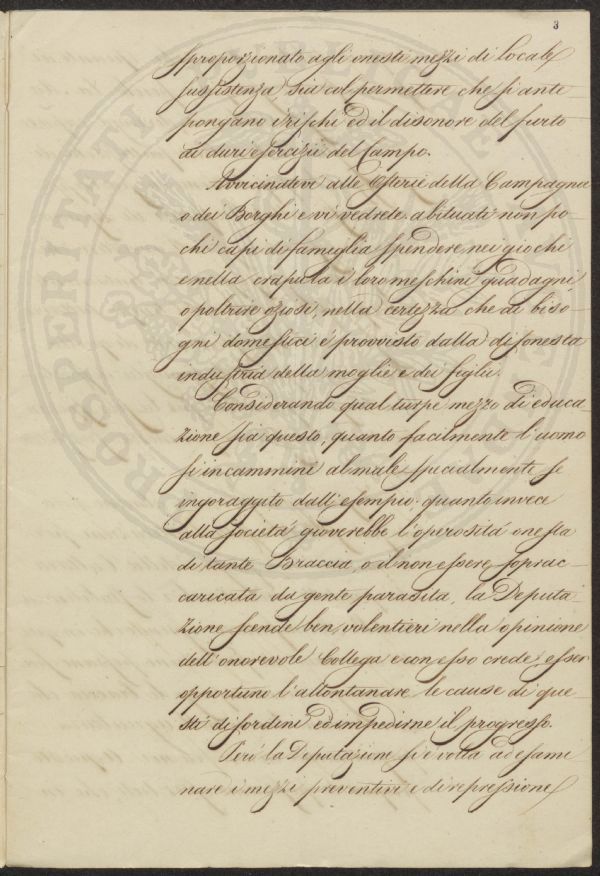 3
sproporzionato agli onesti mezzi di locale
sussistenza sia col permettere che si ante-
pongano i rischi ed il disonore del furto
ai duri esercizii del Campo.
Avvicinatevi alle Osterie della Campagna
o dei Borghi e vi vedrete abituati non po-
chi capi di famiglia spendere nei giochi
e nella crapula i loro meschini guadagni
o poltrire oziosi, nella certezza che ai biso-
gni domestici é provvisto dalla disonesta
industria della moglie e dei figli.
Considerando qual turpe mezzo di educa-
zione sia questo, quanto facilmente l'uomo
si incammini al male specialmente se
incoraggito dall'esempio. quanto invece
alla societá gioverebbe l'operositá onesta
di tante Braccia, o il non essere soprac-
caricata da gente parasita, la Deputa-
zione scende ben volentieri nella opinione
dell'onorevole Collega e con esso crede esser
opportuno l'allontanare le cause di que-
sti disordini ed impedirne il progresso.
Peró la Deputazione si é volta ad esami-
nare i mezzi preventivi e di repressione
PROSPERITATI PUBLICAE